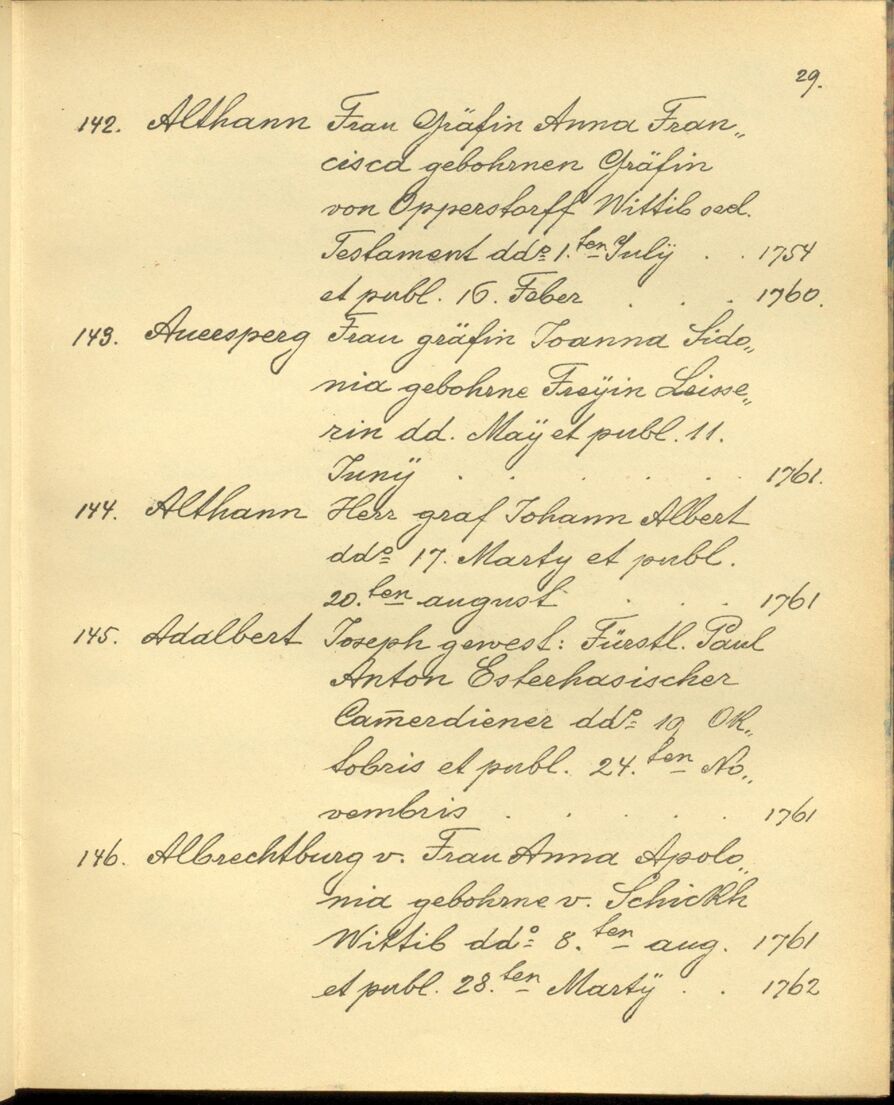 29.
142. Althann Frau Gräfin Anna Fran„
cisca gebohrnen Gräfin
von Opperstorff Wittib sed.
Testament ddo 1.ten July . . 1754
et publ. 16. Feber . . . 1760.
143. Auersperg Frau gräfin Joanna Sido„
nia gebohrne Freÿin Leisse„
rin dd. Maÿ et publ. 11.
Junÿ . . . . . . 1761.
144. Althann Herr graf Johann Albert
ddo 17. Marty et publ.
20.ten august . . . 1761
145. Adalbert Joseph gewest: Fürstl. Paul
Anton Esterhasischer
Cam̄erdiener ddo 19 Ok„
tobris et publ. 24.ten No„
vembris . . . . . 1761
146. Albrechtburg v. Frau Anna Apolo„
nia gebohrne v. Schickh
Wittib ddo 8.ten aug. 1761
et publ. 28.ten Martÿ . . 1762